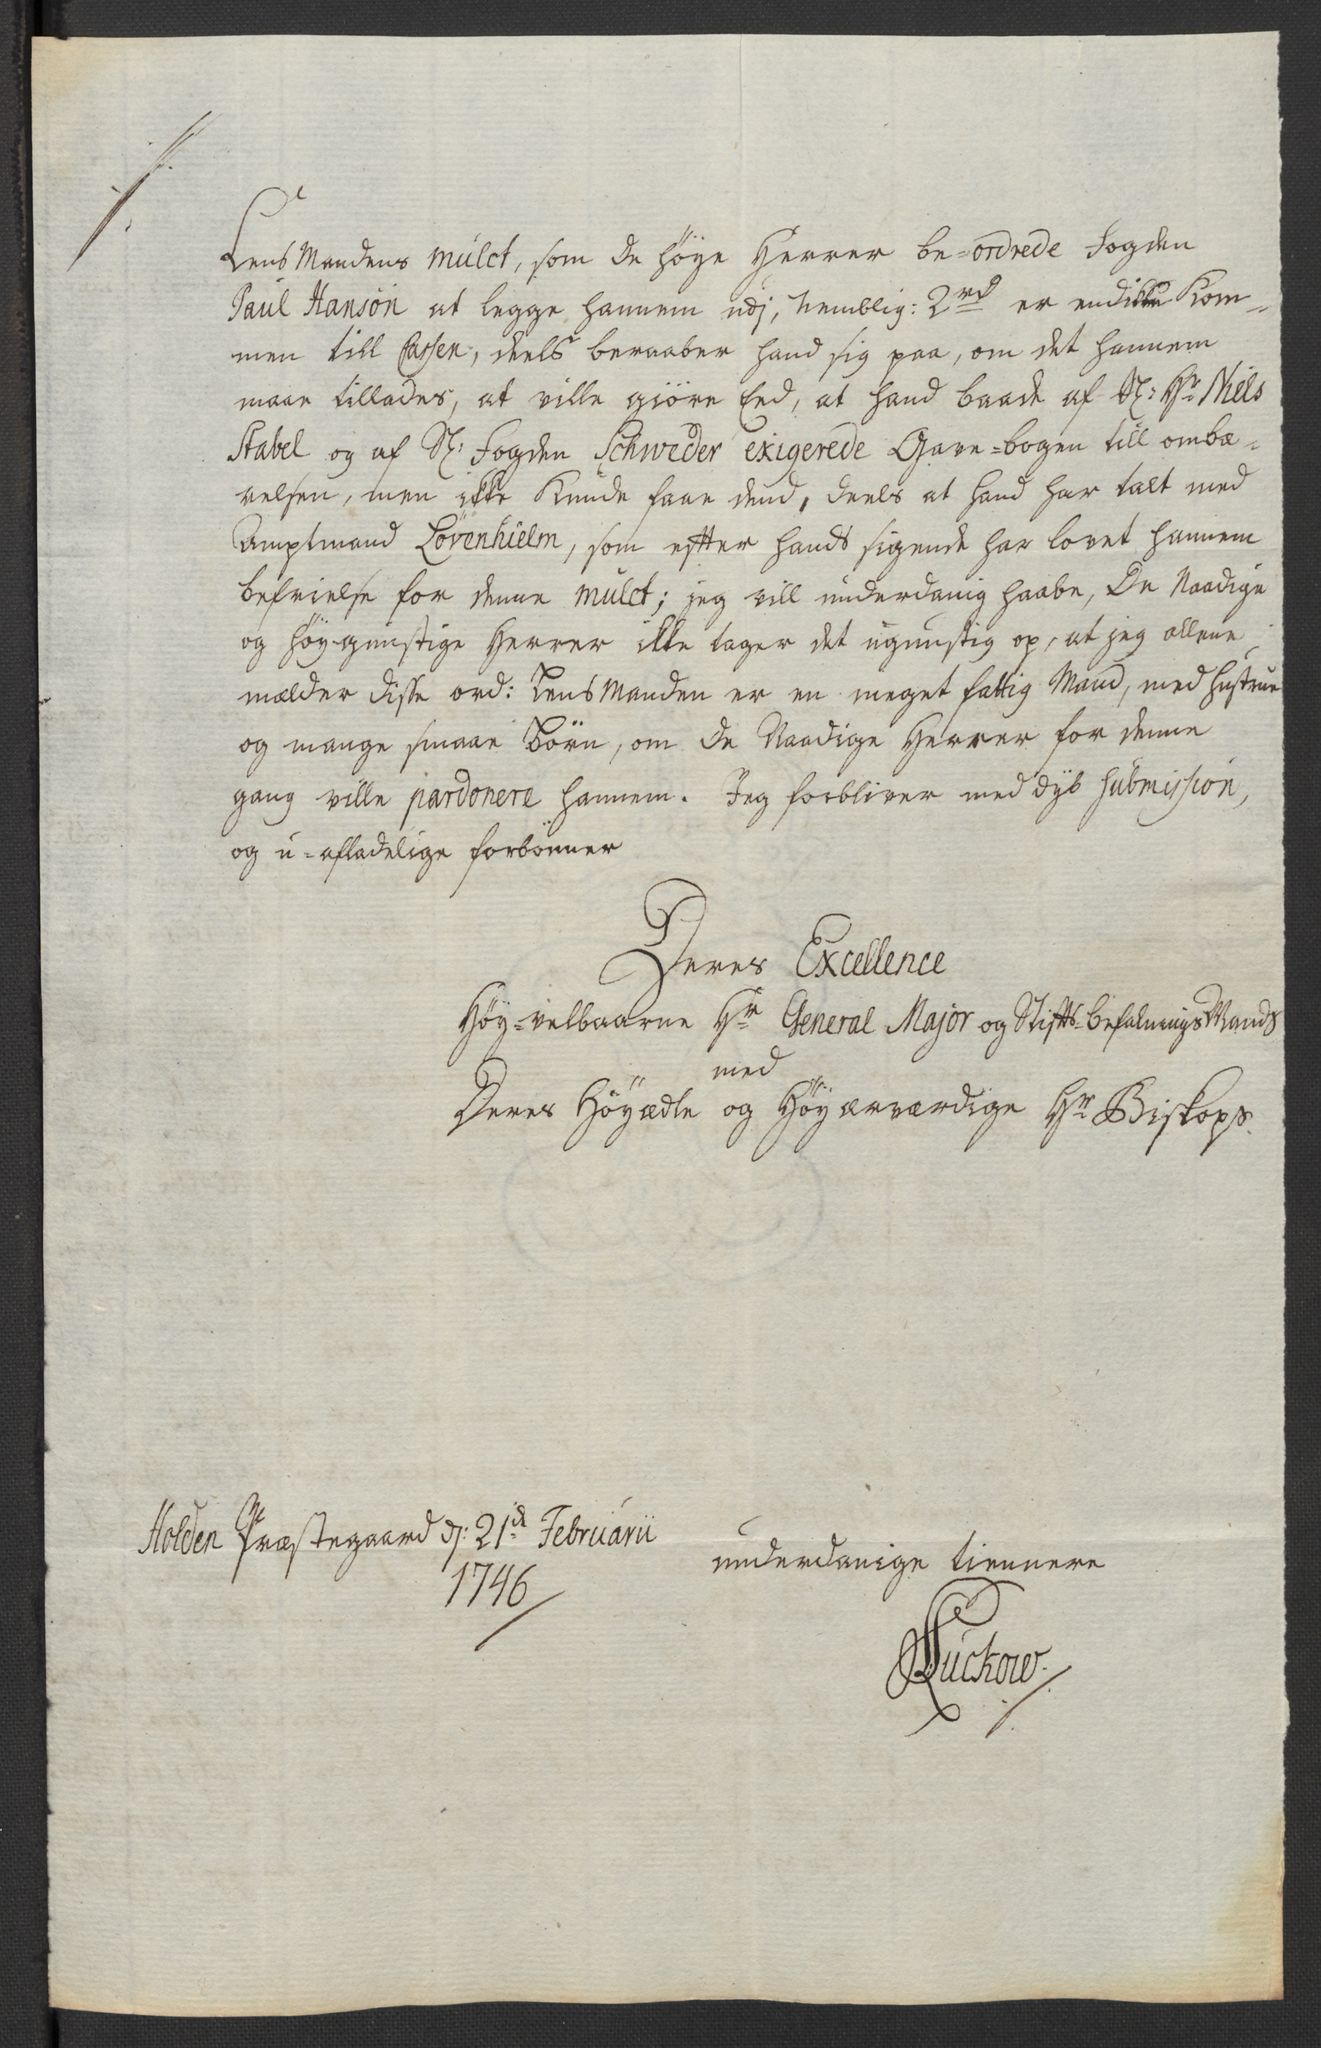 LensMandens mulct, som de høye Herrer be-ordrede Fogden
Paul Hansøn at legge hannem udj, nemblig: 2 rd er endikke Kom-
men till Cassen, deels beraaber hand sig paa, om det hannem
maae tillades, at ville giöre Eed, at hand baade af Sl: Hr Niels
Stabel og af Sl: Fogden Schweder exigerede Gave-bogen till ombæ-
relsen, men ikke kunde faae dend, deels at hand har talt med
Amptmand Lövenhielm, som efter hands sigende har lovet hannem
befrielse for denne mulct; jeg vill underdanig haabe, De Naadige
og høygunstige Herrer ikke tager det ugunstig op, at jeg allene
mælder disse ord: LensManden er en meget fattig Mand, med hustrue
og mange smaae Börn, om De Naadige Herrer for denne
gang ville pardonere hannem. Jeg forbliver med dyb submission,
og u-afladelige forbönner
Deres Excellence
Høy-velbaarne Hr General Major og Stifts-befalningsMands
med
Deres Höyædle og Höyærværdige Hr Biskops
Holden Præstegaard dj: 21de Februarii
1746
underdanige tiennere
Luckow.